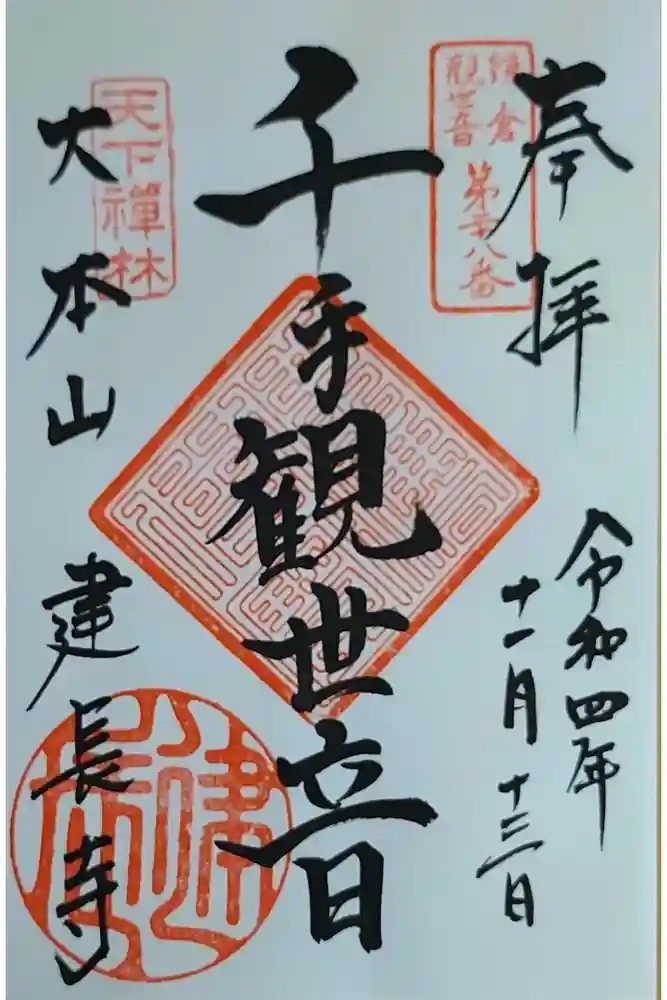 奉拝
令和四年
十一月十三日
鎌倉
観世音
第二十八番
千手観世音
天下禅林
大本山
建長寺